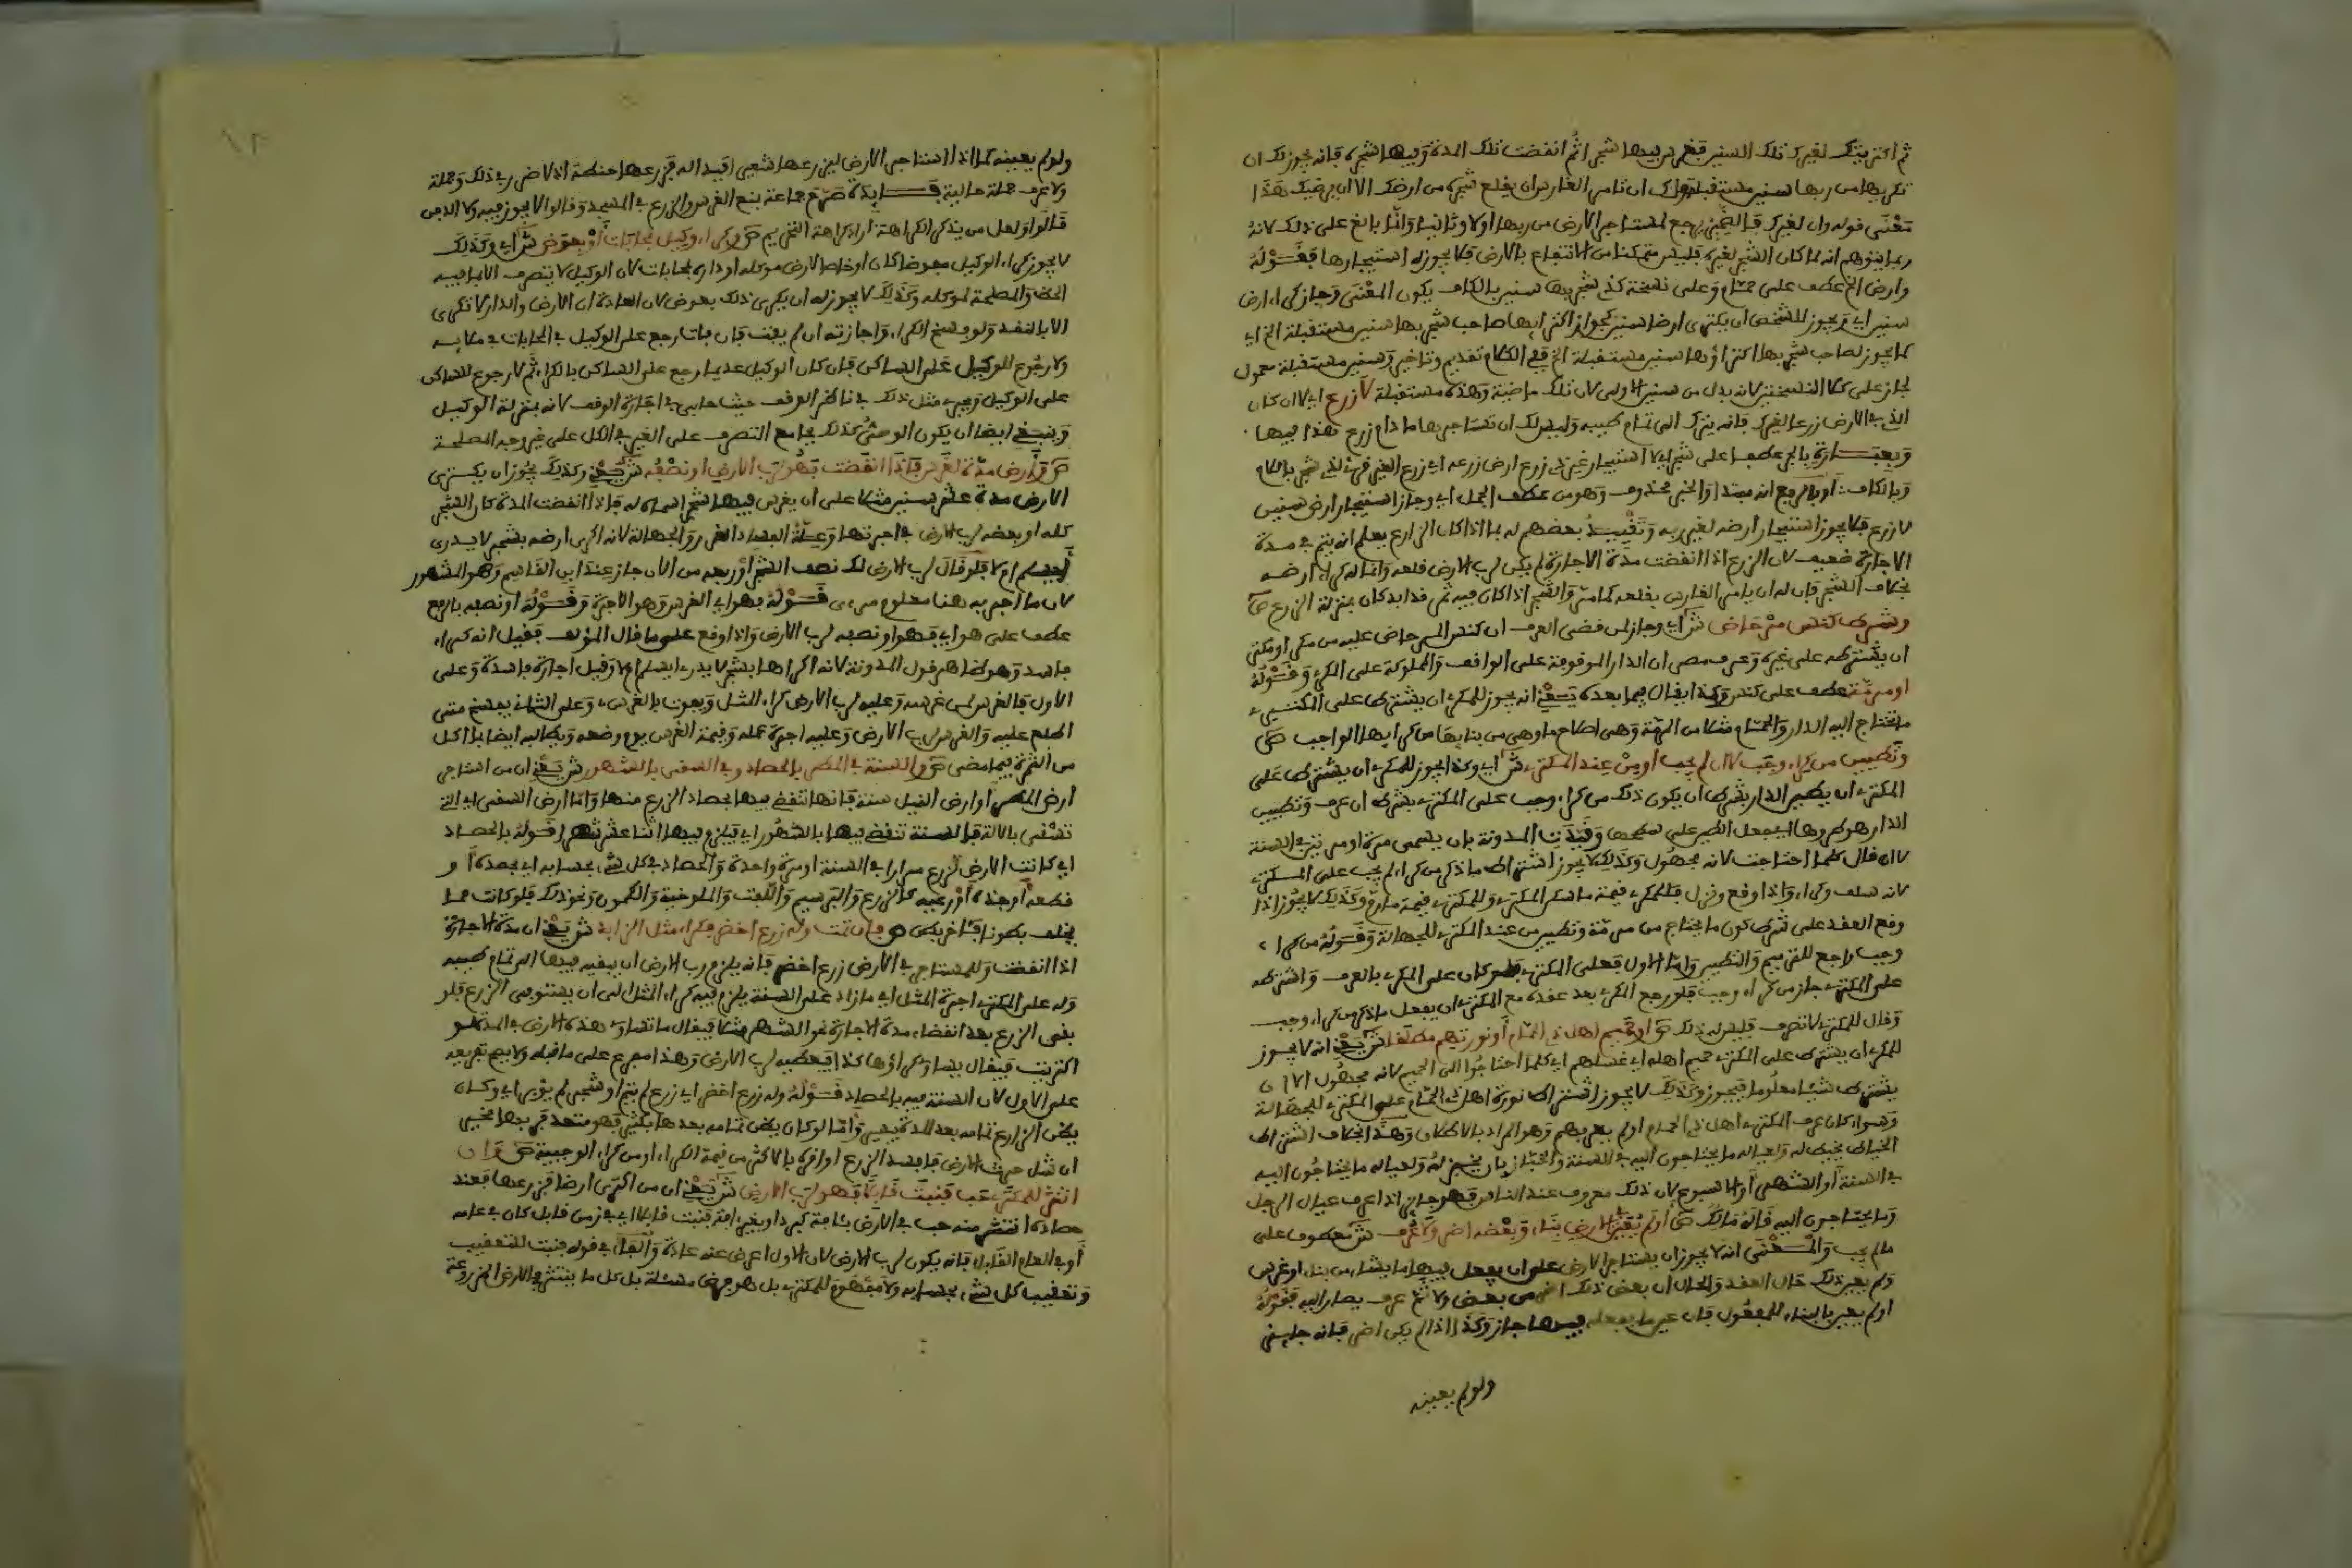 ثم اكتريتك لغيرك تلك السنين فغرس فيها شجرا ثم انقضت تلك المدة وفيها شجره فانه يجوز لك ان
تكريها من ربها سنين مستقبلة ولك ان تامر الغارس ان يقلع شجره من ارضك الا ان يرضيك هذا
معنى قوله وان لغيرك فالضمير يرجع لمستاجر الارض من ربها اولا وثانيا وانما بالغ على ذلك لانه
ربما يتوهم انه لما كان الشجر لغيره فليس متمكنا من الانتفاع بالارض فلا يجوز له استيجارها فقوله
وارض الخ عطف على حمام وعلى نسخة كذي شجر بها سنين بالكاف يكون المعنى وجاز كراء ارض
سنين اي ويجوز للشخص ان يكتري ارضا سنين كجواز اكترايها صاحب شجر بها سنين مستقبلة الخ اي
كما يجوز لصاحب شجر بها اكتراؤها سنين مستقبلة الخ ففي الكلام تقديم وتاخير وسنين مستقبلة معمول
لجاز على كلا النسختين لانه بدل من سنين الاولى لان تلك ماضية وهذه مستقبلة لا زرع اي لا ان كان
الذي في الارض زرعا لغيرك فانه يترك الى تمام طيبه وليس لك ان تستاجرها ما دام زرع هذا فيها
وبعبارة بالجر عطفا على شجر اي لا استيجار غير ذي زرع ارض زرعه اي زرع الغير فهو لذي شجر باللام
وبالكاف او بالرفع انه مبتدا والخبر محذوف وهو من عطف الجمل اي وجاز استيجار ارض سنين
لا زرع فلا يجوز استيجار ارضه لغير ربه وتقييد بعضهم له بما اذا كان الزارع يعلم انه يتم في مدة
الاجارة ضعيف لان الزرع اذا انقضت مدة الاجارة لم يكن لرب الارض قلعه وانما له كراء ارضه
بخلاف الشجر فان له ان يامر الغارس بقلعه كما مر والشجر اذا كان فيه ثمر قد ابد كان بمنزلة الزرع ص
وشرط كنس مرحاض ش اي وجاز لمن قضى العرف ان كنس المرحاض عليه من مكر او مكتر
ان يشترطه على غيره وعرف مصر ان الدار الموقوفة على الوافف والمملوكة على المكري وقوله
او مرمة عطف على كنس وكذا يقال فيما بعده يعني انه يجوز للمكري ان يشترط على المكتري
ما تحتاج اليه الدار والحمام مثلا من المرمة وهي اصلاح ما وهى من بنايها من كرايها الواجب ص
وتطيين من كراء وجب لا ان لم يجب او من عند المكتري ش اي وكذا يجوز للمكري ان يشترط على
المكتري ان يطين الدار بشرط ان يكون ذلك من كراء وجب على المكتري بشرط او عرف وتطيين
الدار هو طرها اي جعل الطين على سطحها وقيدت المدونة بان يسمى مرة او مرتين في السنة
لا ان قال كلما احتاجت لانه مجهول وكذلك لا يجوز اشتراط ما ذكر من كراء لم يجب على المكتري
لانه سلف وكراء واذا وقع ونزل فللمكري قيمة ما سكن المكتري وللمكتري قيمة ما رم وكذلك لا يجوز اذا
وقع العقد على شرط كون ما يحتاج من مرمة وتطيين من عند المكتري للجهالة وقوله من كراء
وجب راجع للترميم والتطيين واما الاول فعلى المكتري فلو كان على المكري بالعرف واشترطه
على المكتري جاز من كراء وجب فلو رجع المكري بعد عقده مع المكتري ان يفعل ما ذكر من كراء وجب
وقال للمكتري لا تصرف فليس له ذلك ص او حميم اهل ذي الحمام او نورتهم مطلقا ش يعني انه لا يجوز
للمكري ان يشترط على المكتري حميم اهله اي غسلهم اي كلما احتاجوا الى الحميم لانه مجهول الا ان
يشترط شيئا معلوما فيجوز وكذلك لا يجوز اشتراط نورة اهل ذي الحمام على المكتري للجهالة
وسواء كان عرف المكتري اهل ذي الحمام او لم يعرفهم وهو المراد بالاطلاق وهذا بخلاف اشتراط
الخياط يخيط له ولعياله ما يحتاجون اليه في السنة والخباز بان يخبز له ولعياله ما يحتاجون اليه
في السنة او الشهر او الاسبوع لان ذلك معروف عند الناس فهو جايز اذا عرف عيال الرجل
وما يحتاجون اليه قاله مالك ص او لم يعين في الارض بناء وبعضه اضر ولا عرف ش معطوف على
ما لم يجب والمعنى انه لا يجوز ان يستاجر الارض على ان يعمل فيها ما يشاء من بناء او غرس
ولم يعين ذلك حال العقد والحال ان بعض ذلك اضر من بعض ولا ثم عرف يصار اليه فقوله
او لم يعين بالبناء للمفعول فان عين ما يفعله فيها جاز وكذا اذا لم يكن اضر فانه جايز
ولو لم يعينه
ولو لم يعينه كما اذا استاجر الارض ليزرعها شعيرا فبدا له فزرعها حنطة اذ لا ضرر في ذلك وجملة
ولا عرف جملة حالية فـــايدة صرح جماعة بمنع الغرس والزرع في المسجد وقالوا لا يجوز فيه ولا الدفن
قالوا ولعل من يذكر الكراهة اراد كراهة التحريم ص وكراء وكيل بمحابات او بعرض ش اي وكذلك
لا يجوز كراء الوكيل مفوضا كان او خاصا لارض موكله او داره بمحابات لان الوكيل لا يتصرف الا بما فيه
الحظ والمصلحة لموكله وكذلك لا يجوز له ان يكري ذلك بعرض لان العادة ان الارض والدار لا تكرى
الا بالنقد وله فسخ الكراء واجازته ان لم يفت فان فات رجع على الوكيل في المحابات في ماله
ولا رجوع للوكيل على الساكن فان كان الوكيل عديما رجع على الساكن بالكراء ثم لا رجوع للساكن
على الوكيل ويجري مثل ذلك في ناظر الوقف حيث حابى في اجارة الوقف لانه بمنزلة الوكيل
وينبغي ايضا ان يكون الوصي كذلك بجامع التصرف على الغير في الكل على غير وجه المصلحة
ص وارض مدة لغرس فاذا انقضت فهو لرب الارض او نصفه ش يعني وكذلك يجوز ان يكتري
الارض مدة عشر سنين مثلا على ان يغرس فيها شجرا سماه له فاذا انقضت المدة كان الشجر
كله او بعضه لرب الارض في اجرتها وعلة الفساد الغرر والجهالة لانه اكرى ارضه بشجر لا يدرى
ايسلم ام لا فلو قال لرب الارض لك نصف الشجر او ربعه من الان جاز عند ابن القاسم وهو المشهور
لان ما اجر به هنا معلوم مرءى قوله فهو اي الغرس وهو الاجرة وقوله او نصفه بالرفع
عطف على هو اي فهو او نصفه لرب الارض واذا وقع على ما قال المؤلف فقيل انه كراء
فاسد وهو ظاهر قول المدونة لانه اكراها بشجر لا يدرى ايسلم ام لا وقيل اجارة فاسدة وعلى
الاول فالغرس لمن غرسه وعليه لرب الارض كراء المثل ويفوت بالغرس وعلى الثاني يفسخ متى
اطلع عليه والغرس لرب الارض وعليه اجرة عمله وقيمة الغرس يوم وضعه ويطالبه ايضا بما اكل
من الثمرة فيما مضى ص والسنة في المطر بالحصاد وفي السقي بالشهور ش يعني ان من استاجر
ارض المطر او ارض النيل سنة فانها تنقضي فيها بحصاد الزرع منها واما ارض السقي اي التي
تسقى بالالة فالسنة تنقضي فيها بالشهور اي فيلزم فيها اثنا عشر شهرا قوله بالحصاد
اي كانت الارض تزرع مرارا في السنة او مرة واحدة والحصاد في كل شيء بحسابه اي بحصده او
قطعه او جذه او رعيه كالزرع والبرسيم واللفت والملوخية والكمون ونحو ذلك فلو كانت مما
يخلف بطونا فباخر بطن ص فان تمت وله زرع اخضر فكراء مثل الزايد ش يعني ان مدة الاجارة
اذا انقضت وللمستاجر في الارض زرع اخضر فانه يلزم رب الارض ان يبقيه فيها الى تمام طيبه
وله على المكتري اجرة المثل اي ما زاد على السنة يلزم فيه كراء المثل الى ان يستوفي الزرع فلو
بقي الزرع بعد انقضاء مدة الاجارة نحو الشهر مثلا فيقال ما تساوي هذه الارض في المدة لو
اكتريت فيقال فيها وكراؤها كذا فيعطيه لرب الارض وهذا مفرع على ما قبله ولا يصح تفريعه
على الاول لان السنة فيه بالحصاد قوله وله زرع اخضر اي زرع لم يتم او شجر لم يؤبر اي وكان
يظن الزارع تمامه بعد المدة بيسير واما لو كان يظن تمامه بعدها بكثير فهو متعد فربها مخير
ان شاء حرث الارض فافسد الزرع او اقره بالاكثر من قيمة الكراء او من كراء الوجيبة ص وان
انتثر للمكتري حب فنبت قابلا فهو لرب الارض ش يعني ان من اكترى ارضا فزرعها فعند
حصاده انتثر منه حب في الارض بئافة كبرد او بغير افة فنبت قابلا اي في زمن قابل كان في عامه
او في العام القابل فانه يكون لرب الارض لان الاول اعرض عنه عادة والفاء في قوله فنبت للتعقيب
وتعقيب كل شيء بحسابه ولا مفهوم للمكتري بل هو فرض مسئلة بل كل ما ينتثر في الارض المزروعة